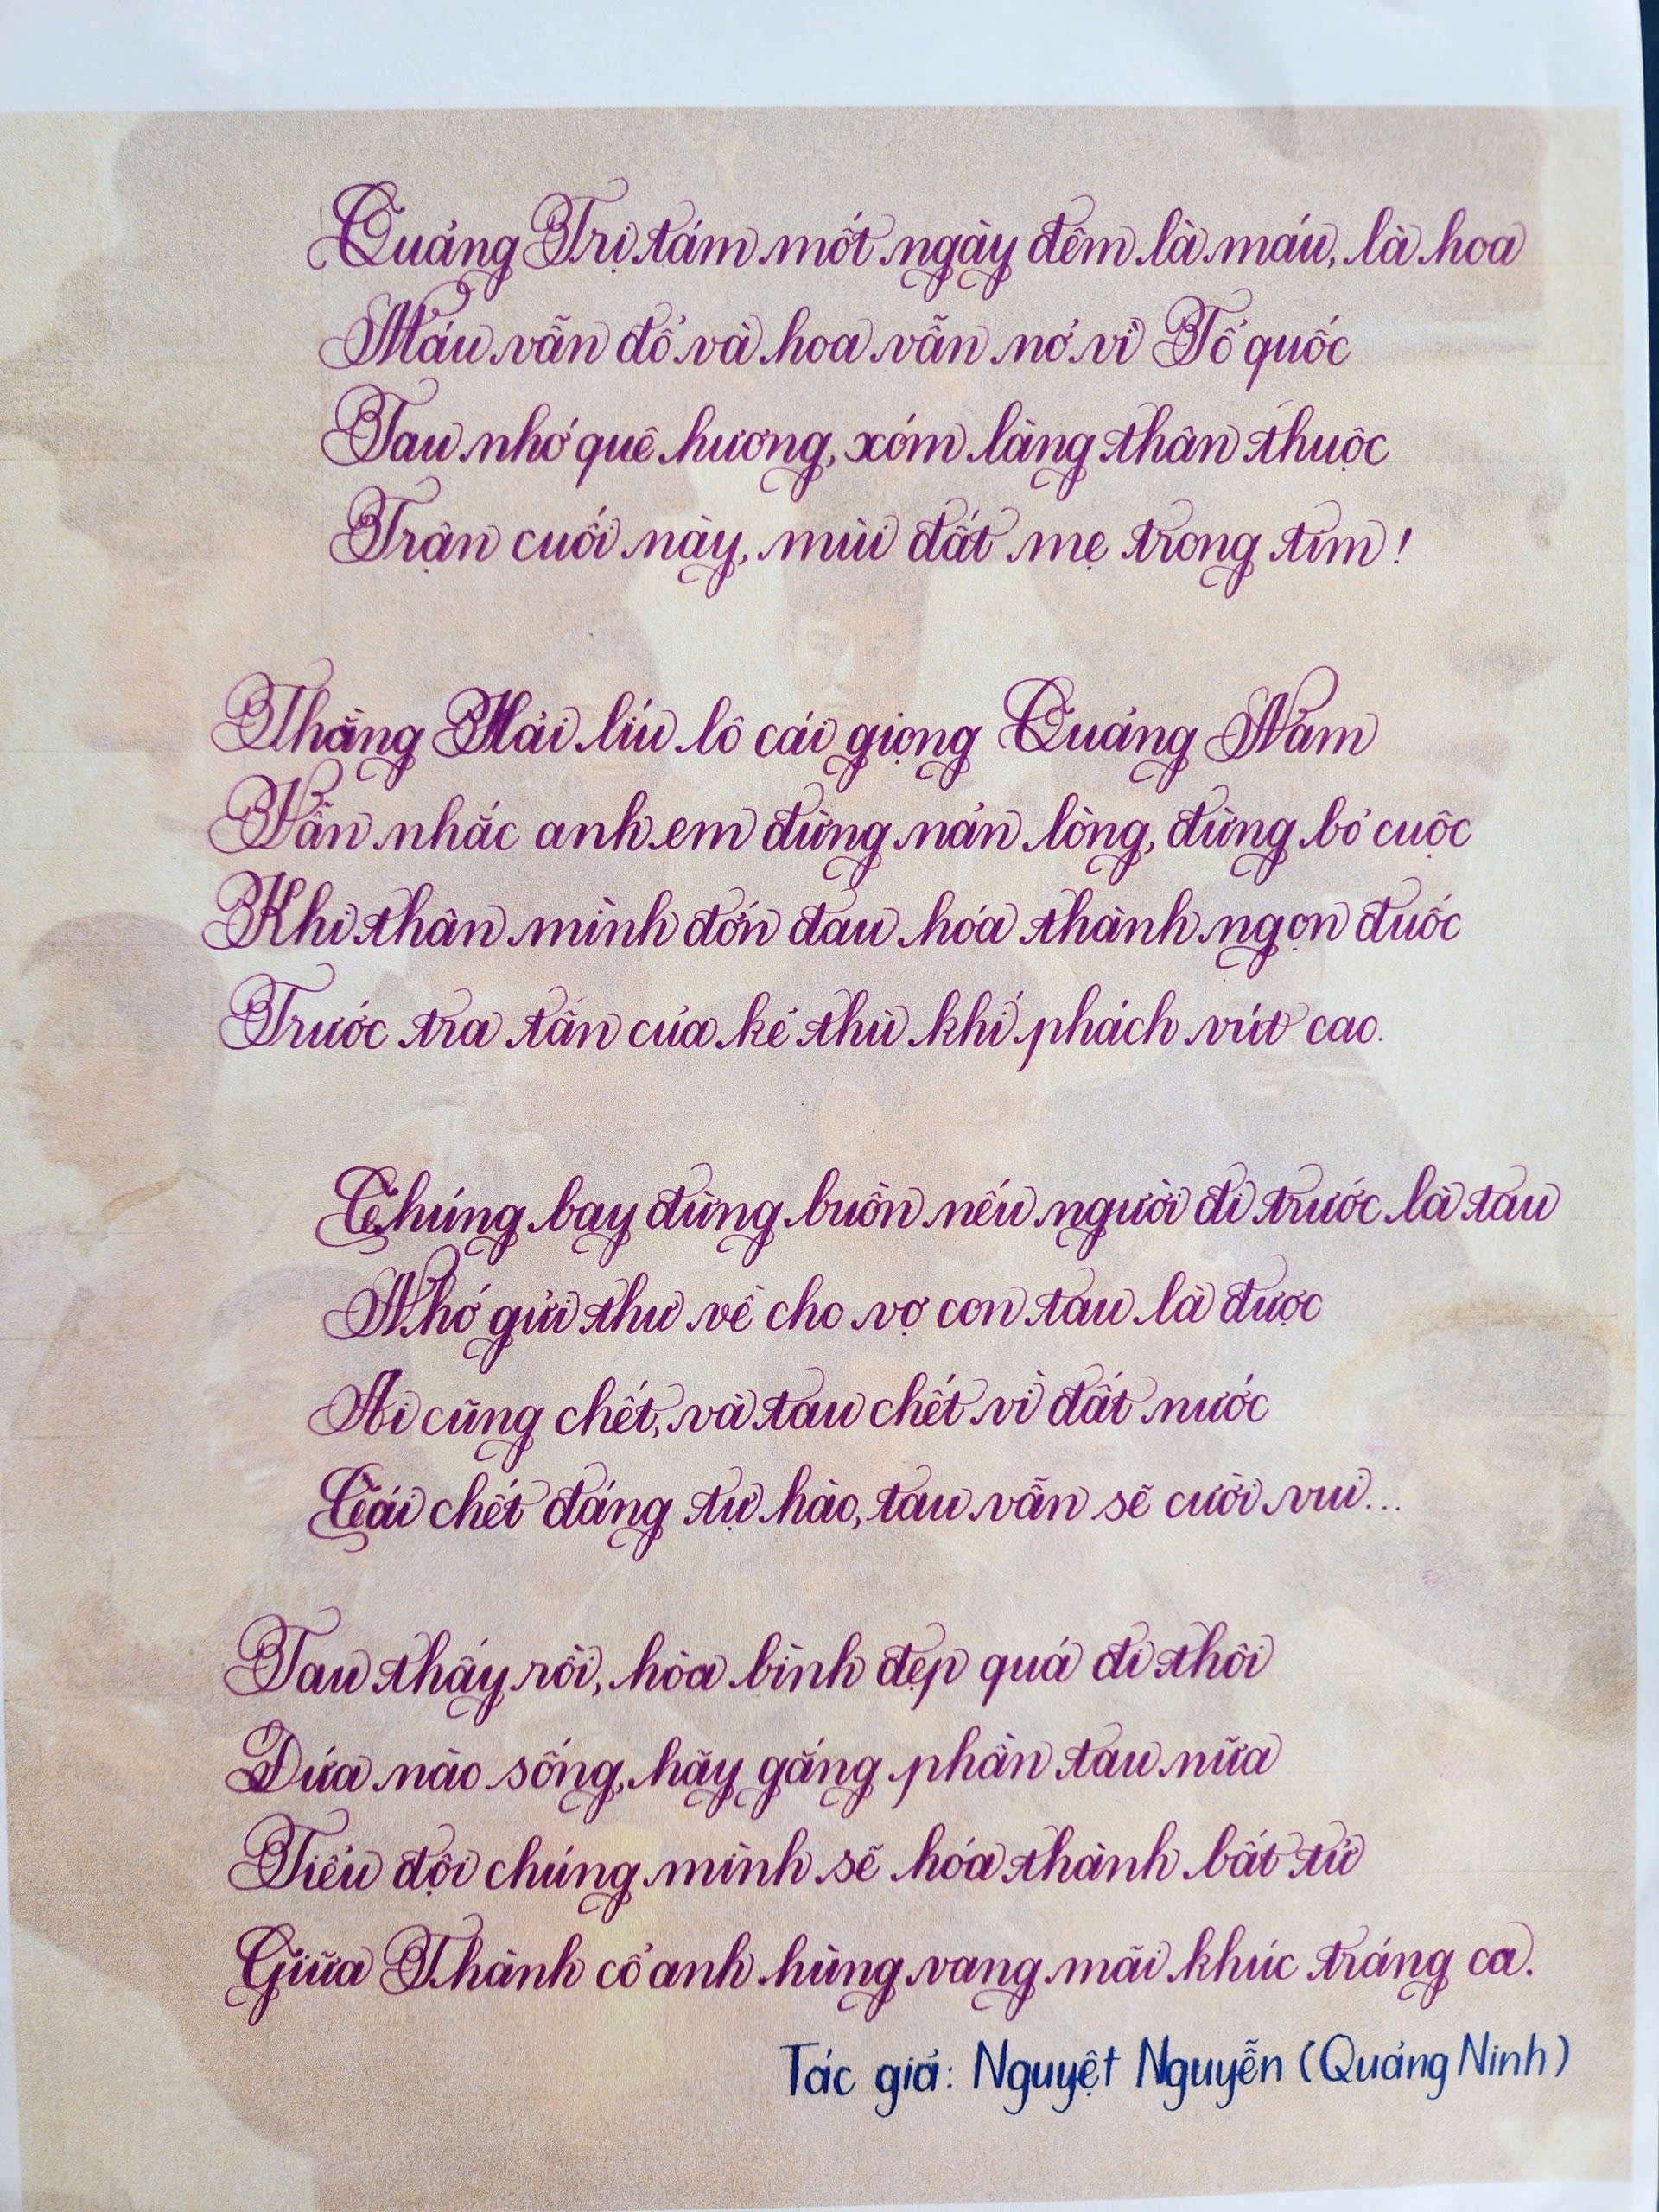 Quảng Trị tám mốt ngày đêm là máu, là hoa
Máu vẫn đổ và hoa vẫn nở vì Tổ quốc
Tau nhớ quê hương, xóm làng thân thuộc
Trận cuối này, mùi đất mẹ trong tim!
Thằng Hải líu lô cái giọng Quảng Nam
Vẫn nhắc anh em đừng nản lòng, đừng bỏ cuộc
Khi thân mình đớn đau hóa thành ngọn đuốc
Trước tra tấn của kẻ thù khí phách vút cao.
Chúng bay đừng buồn nếu người đi trước là tau
Nhớ gửi thư về cho vợ con tau là được
Ai cũng chết, và tau chết vì đất nước
Cái chết đáng tự hào, tau vẫn sẽ cười vui...
Tau thấy rồi, hòa bình đẹp quá đi thôi
Đứa nào sống, hãy gắng phần tau nữa
Tiểu đội chúng mình sẽ hóa thành bất tử
Giữa Thành cổ anh hùng vang mãi khúc tráng ca.
Tác giả: Nguyệt Nguyễn (Quảng Ninh)